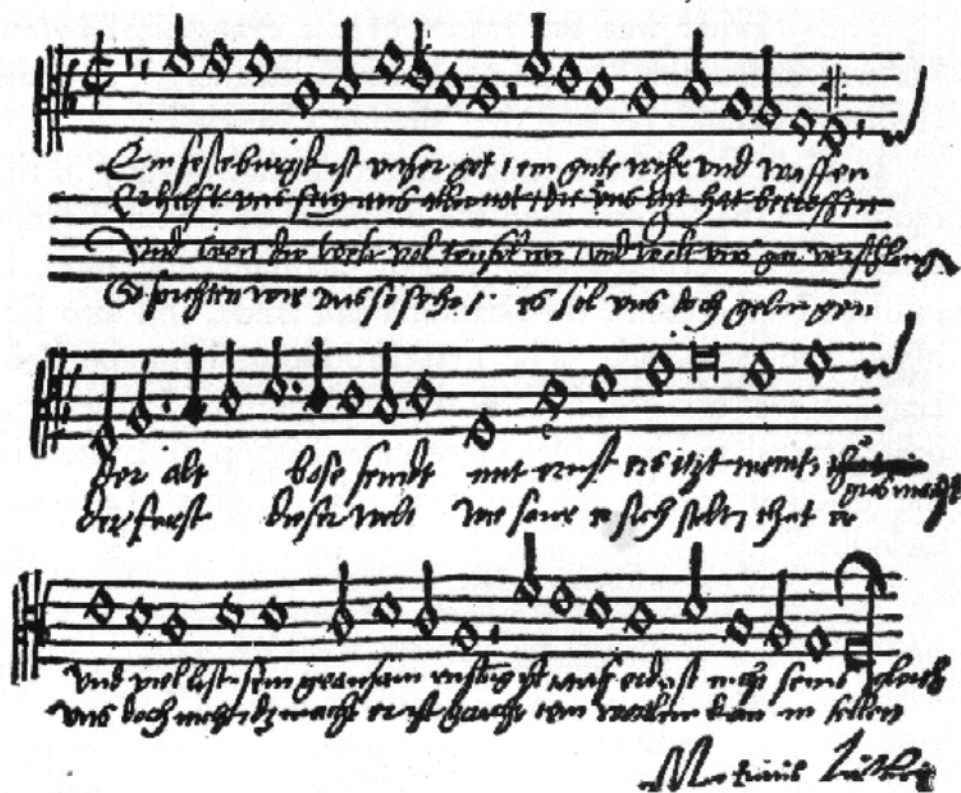 Ein feste burgk ist unser got / ein gute wehr und waffen
Er hilfft uns frey aus aller not / die uns itzt hat betroffen
Und wen die welt vol teufel wer / und wolt uns gar verschling
So furchten wir uns so sehr / es sol uns doch gelingen
Der alt bose feindt mit ernst ers itzt meint
gros macht
der furst dieser welt wie saur er sich stelt / thut er
und viel list sein grausam rustung ist auf erd ist nicht seins gleich
uns doch nicht das macht er ist gericht ein wortlein kan in fellen
Martinus Luther